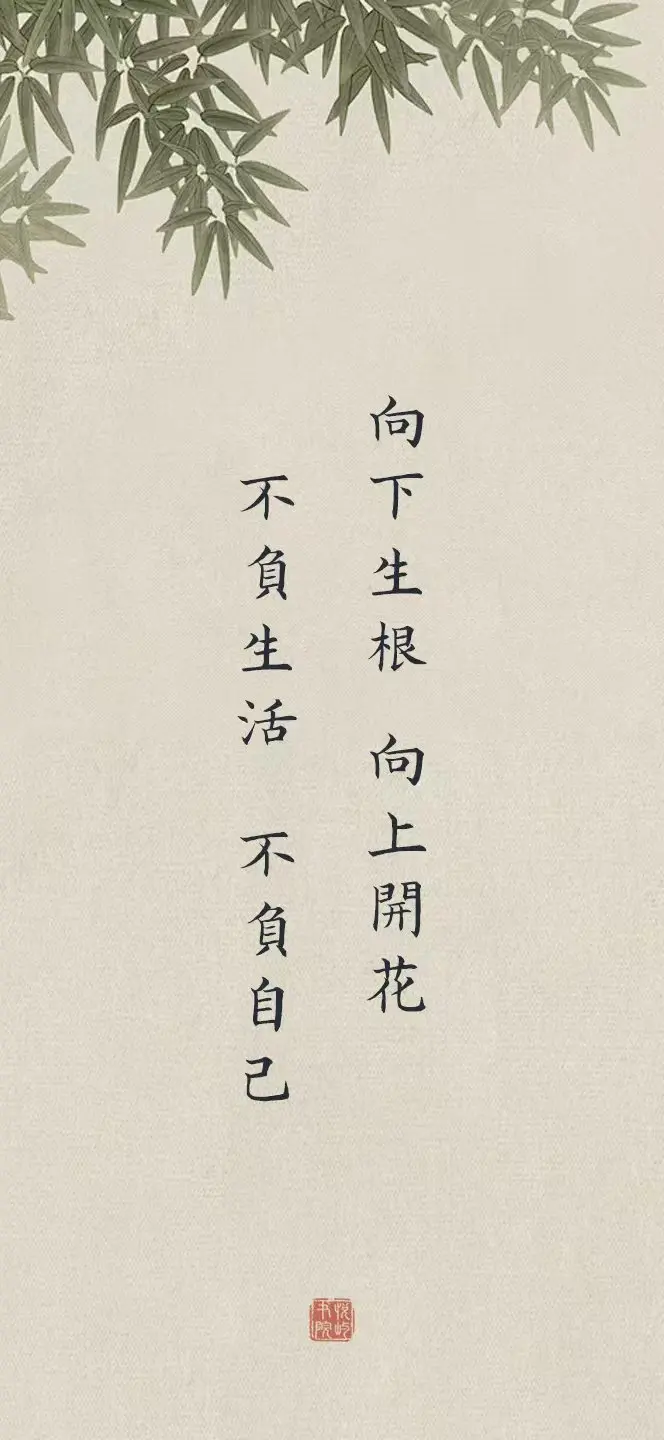 向下生根 向上開花
不負生活 不負自己
悦屿
书院